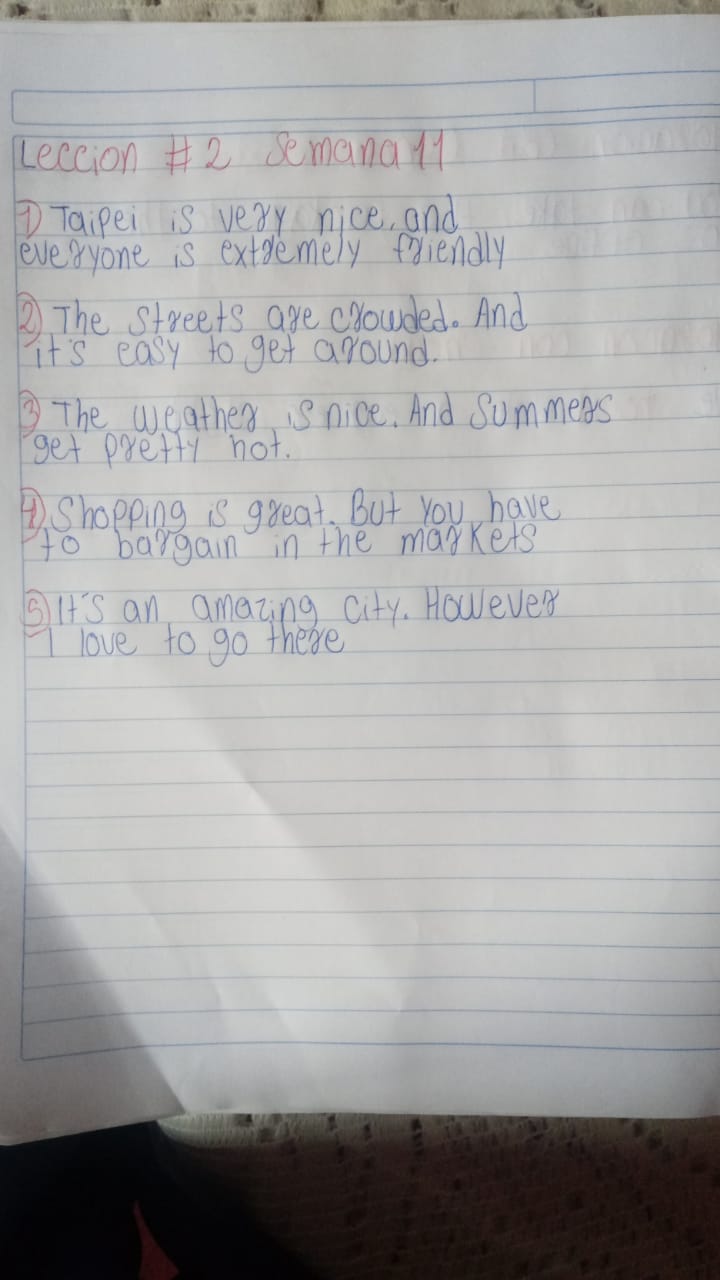 Leccion # 2 Semana 11
1) Taipei is very nice, and
everyone is extremely friendly
2) The streets are crowded. And
it's easy to get around.
3 The weather is nice. And Summers
get pretty hot.
4) Shopping is great. But you have
to bargain in the markets
5) It's an amazing city. However
I love to go there